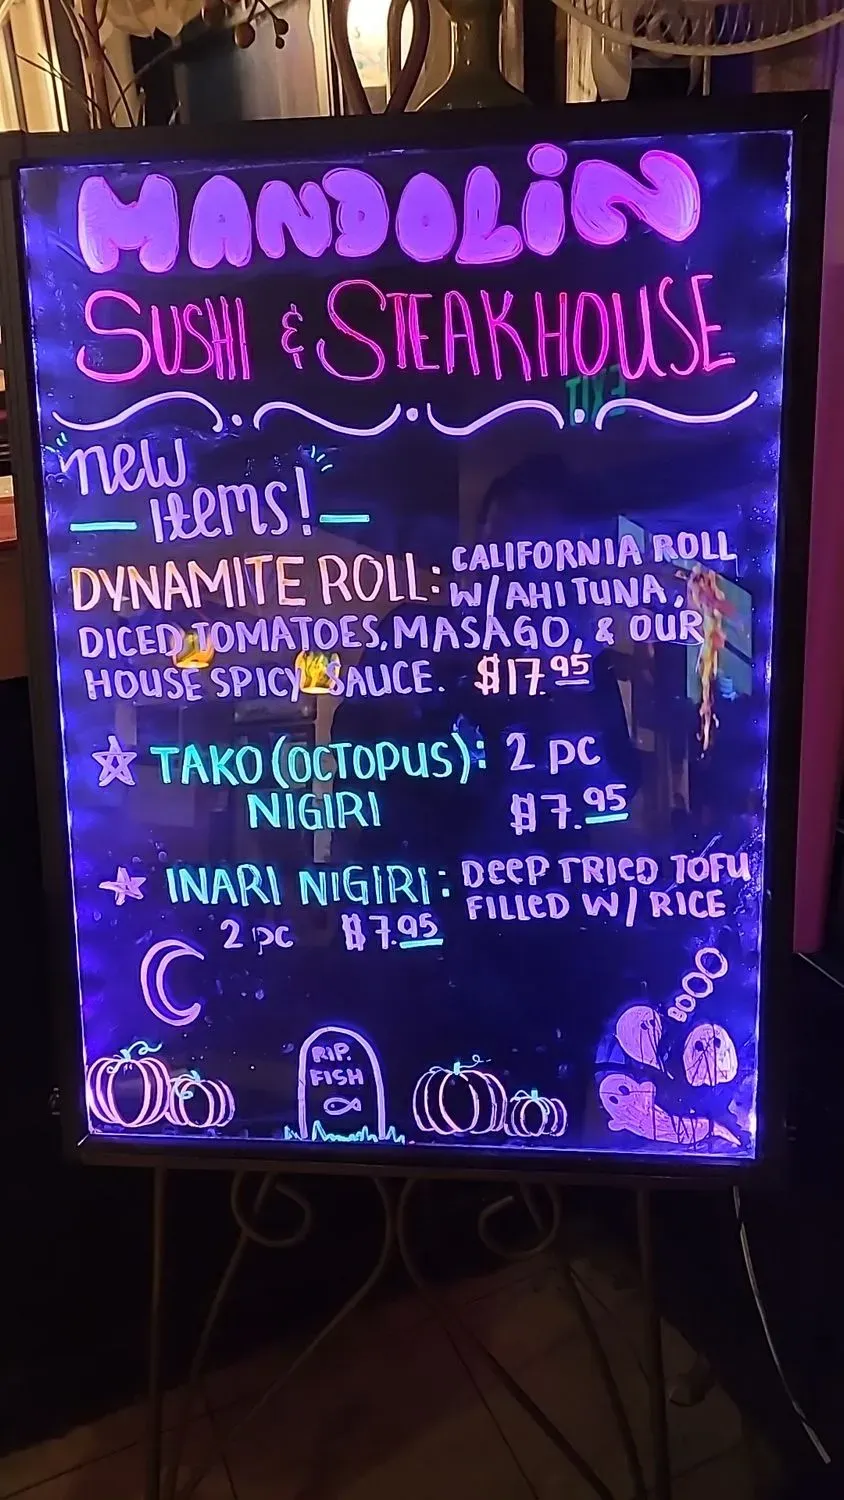 MANDOLIN
SUSHI & STEAKHOUSE
EXIT
new
Items!
DYNAMITE ROLL: CALIFORNIA ROLL
W/ AHI TUNA,
DICED TOMATOES, MASAGO, & OUR
HOUSE SPICY SAUCE. $17.95
TAKO (OCTOPUS): 2 pc
NIGIRI $7.95
INARI NIGIRI: DEEP FRIED TOFU
FILLED W/ RICE
2 pc $7.95
BOOO
R.I.P.
FISH